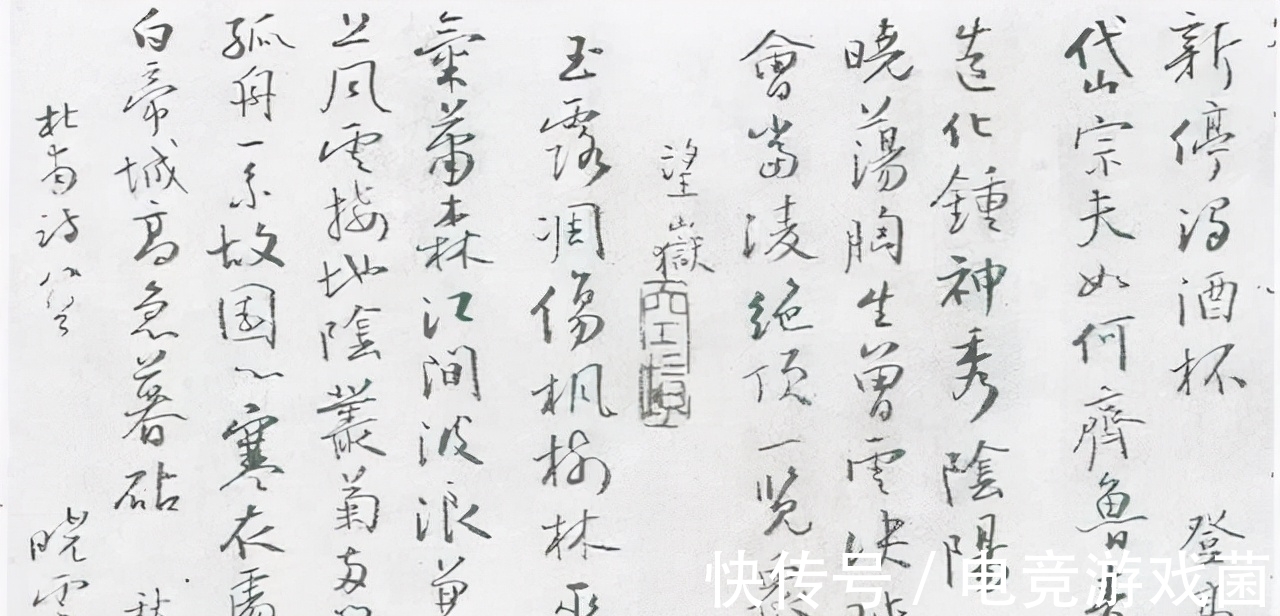 新停濁酒杯 登
岱宗夫如何齊魯青
造化鍾神秀陰陽
曉蕩胸生曾雲決
會當凌絕頂一覽眾
望嶽
玉露凋傷楓樹林巫
氣蕭森江間波浪兼
上風雲接地陰叢菊兩
孤舟一系故園心寒衣處
白帝城高急暮砧 秋
杜甫詩八首
曉雲
快传号 / 电竞游戏菌